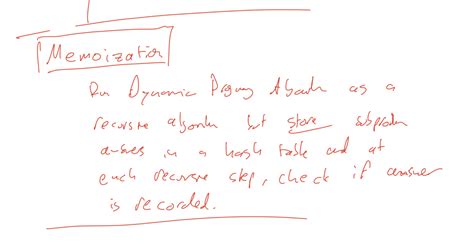 Memoization
Run Dynamic Progrmg Algorithm as a
recursive algorithm but store subproblem
answers in a hash table and at
each recursive step, check if answer
is recorded.